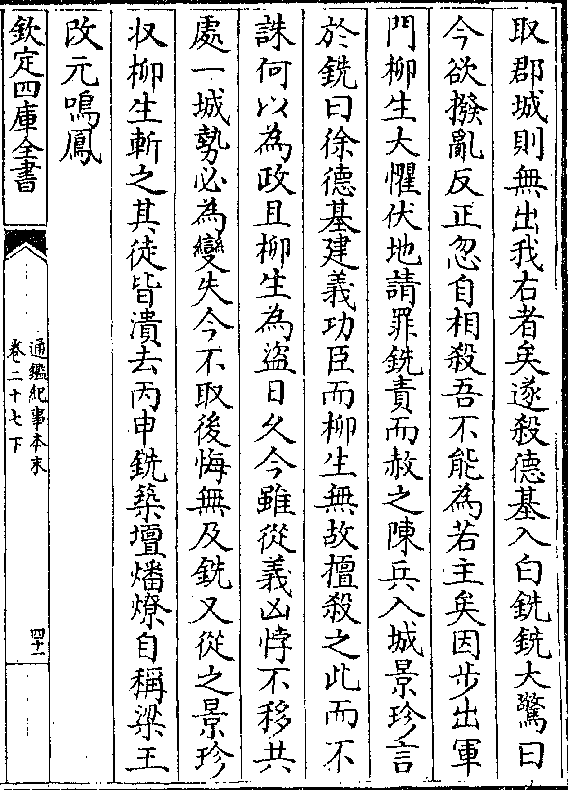 取郡城則無出我右者矣遂殺德基入白銑銑大驚曰
今欲撥亂反正忽自相殺吾不能為若主矣因步出軍
門柳生大懼伏地請罪銑責而赦之陳兵入城景珍言
於銑曰徐德基建義功臣而柳生無故擅殺之此而不
誅何以為政且柳生為盜日久今雖從義凶悖不移共
處一城勢必為變失今不取後悔無及銑又從之景珍
収柳生斬之其徒皆潰去丙申銑築壇燔燎自稱梁王
改元鳴鳳
欽定四庫全書
通鑑紀事本末
卷二十七下
四十一